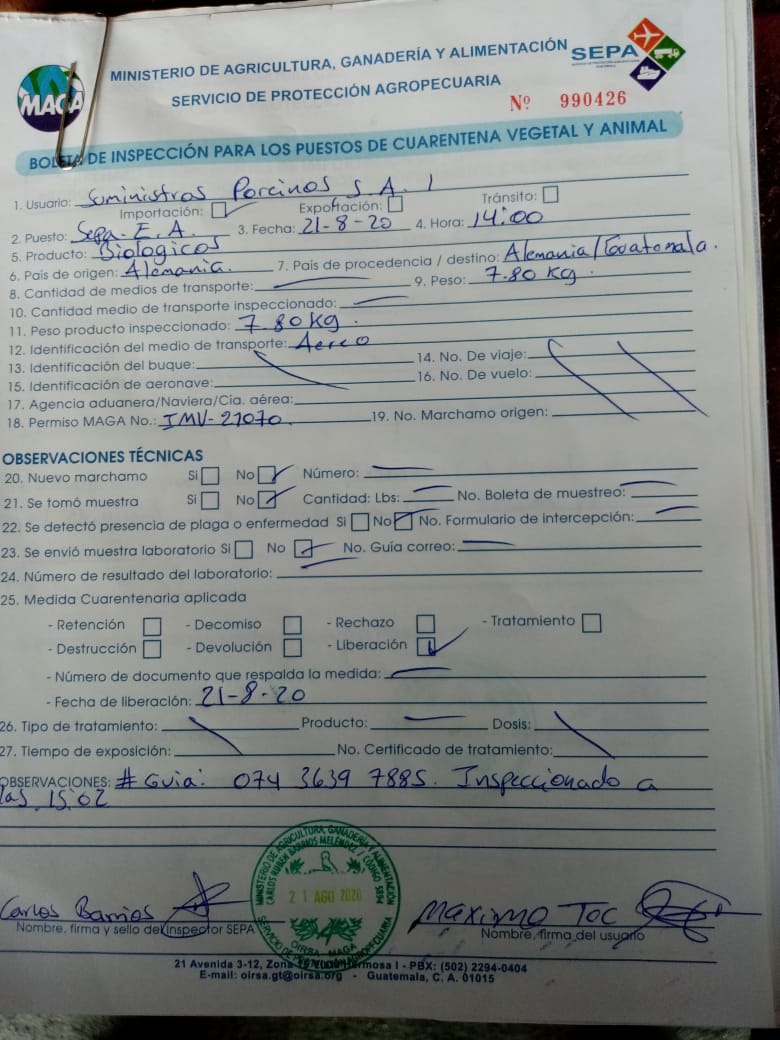 MAGA
MINISTERIO DE AGRICULTURA, GANADERÍA Y ALIMENTACIÓN
SEPA
SERVICIO DE PROTECCIÓN AGROPECUARIA
Nº 990426
BOLETA DE INSPECCIÓN PARA LOS PUESTOS DE CUARENTENA VEGETAL Y ANIMAL
1. Usuario: Suministros Porcinos S.A.
Importación: Exportación: Tránsito:
2. Puesto: Sepa. E.A. 3. Fecha: 21-8-20 4. Hora: 14:00
5. Producto: Biologicos
6. País de origen: Alemania. 7. País de procedencia / destino: Alemania/Guatemala.
8. Cantidad de medios de transporte: 9. Peso: 7.80 Kg.
10. Cantidad medio de transporte inspeccionado:
11. Peso producto inspeccionado: 7.80 Kg.
12. Identificación del medio de transporte: Aereo
13. Identificación del buque: 14. No. De viaje:
15. Identificación de aeronave: 16. No. De vuelo:
17. Agencia aduanera/Naviera/Cia. aérea:
18. Permiso MAGA No.: IMV-27070. 19. No. Marchamo origen:
OBSERVACIONES TÉCNICAS
20. Nuevo marchamo Si No Número:
21. Se tomó muestra Si No Cantidad: Lbs: No. Boleta de muestreo:
22. Se detectó presencia de plaga o enfermedad Si No No. Formulario de intercepción:
23. Se envió muestra laboratorio Si No No. Guía correo:
24. Número de resultado del laboratorio:
25. Medida Cuarentenaria aplicada
- Retención - Decomiso - Rechazo - Tratamiento
- Destrucción - Devolución - Liberación
- Número de documento que respalda la medida:
- Fecha de liberación: 21-8-20
26. Tipo de tratamiento: Producto: Dosis:
27. Tiempo de exposición: No. Certificado de tratamiento:
OBSERVACIONES: # Guia: 074 3639 7885. Inspeccionado a
las 15:02
MINISTERIO DE AGRICULTURA, GANADERÍA Y ALIMENTACIÓN
CARLOS RUBÉN BARRIOS MELÉNDEZ / CODIGO 5854
21 AGO 2020
OIRSA - MAGA
SERVICIO DE PROTECCIÓN AGROPECUARIA
Carlos Barrios Maximo Toc
Nombre, firma y sello del Inspector SEPA Nombre, firma del usuario
21 Avenida 3-12, Zona Hermosa I - PBX: (502) 2294-0404
E-mail: oirsa.gt@oirsa.org - Guatemala, C. A. 01015